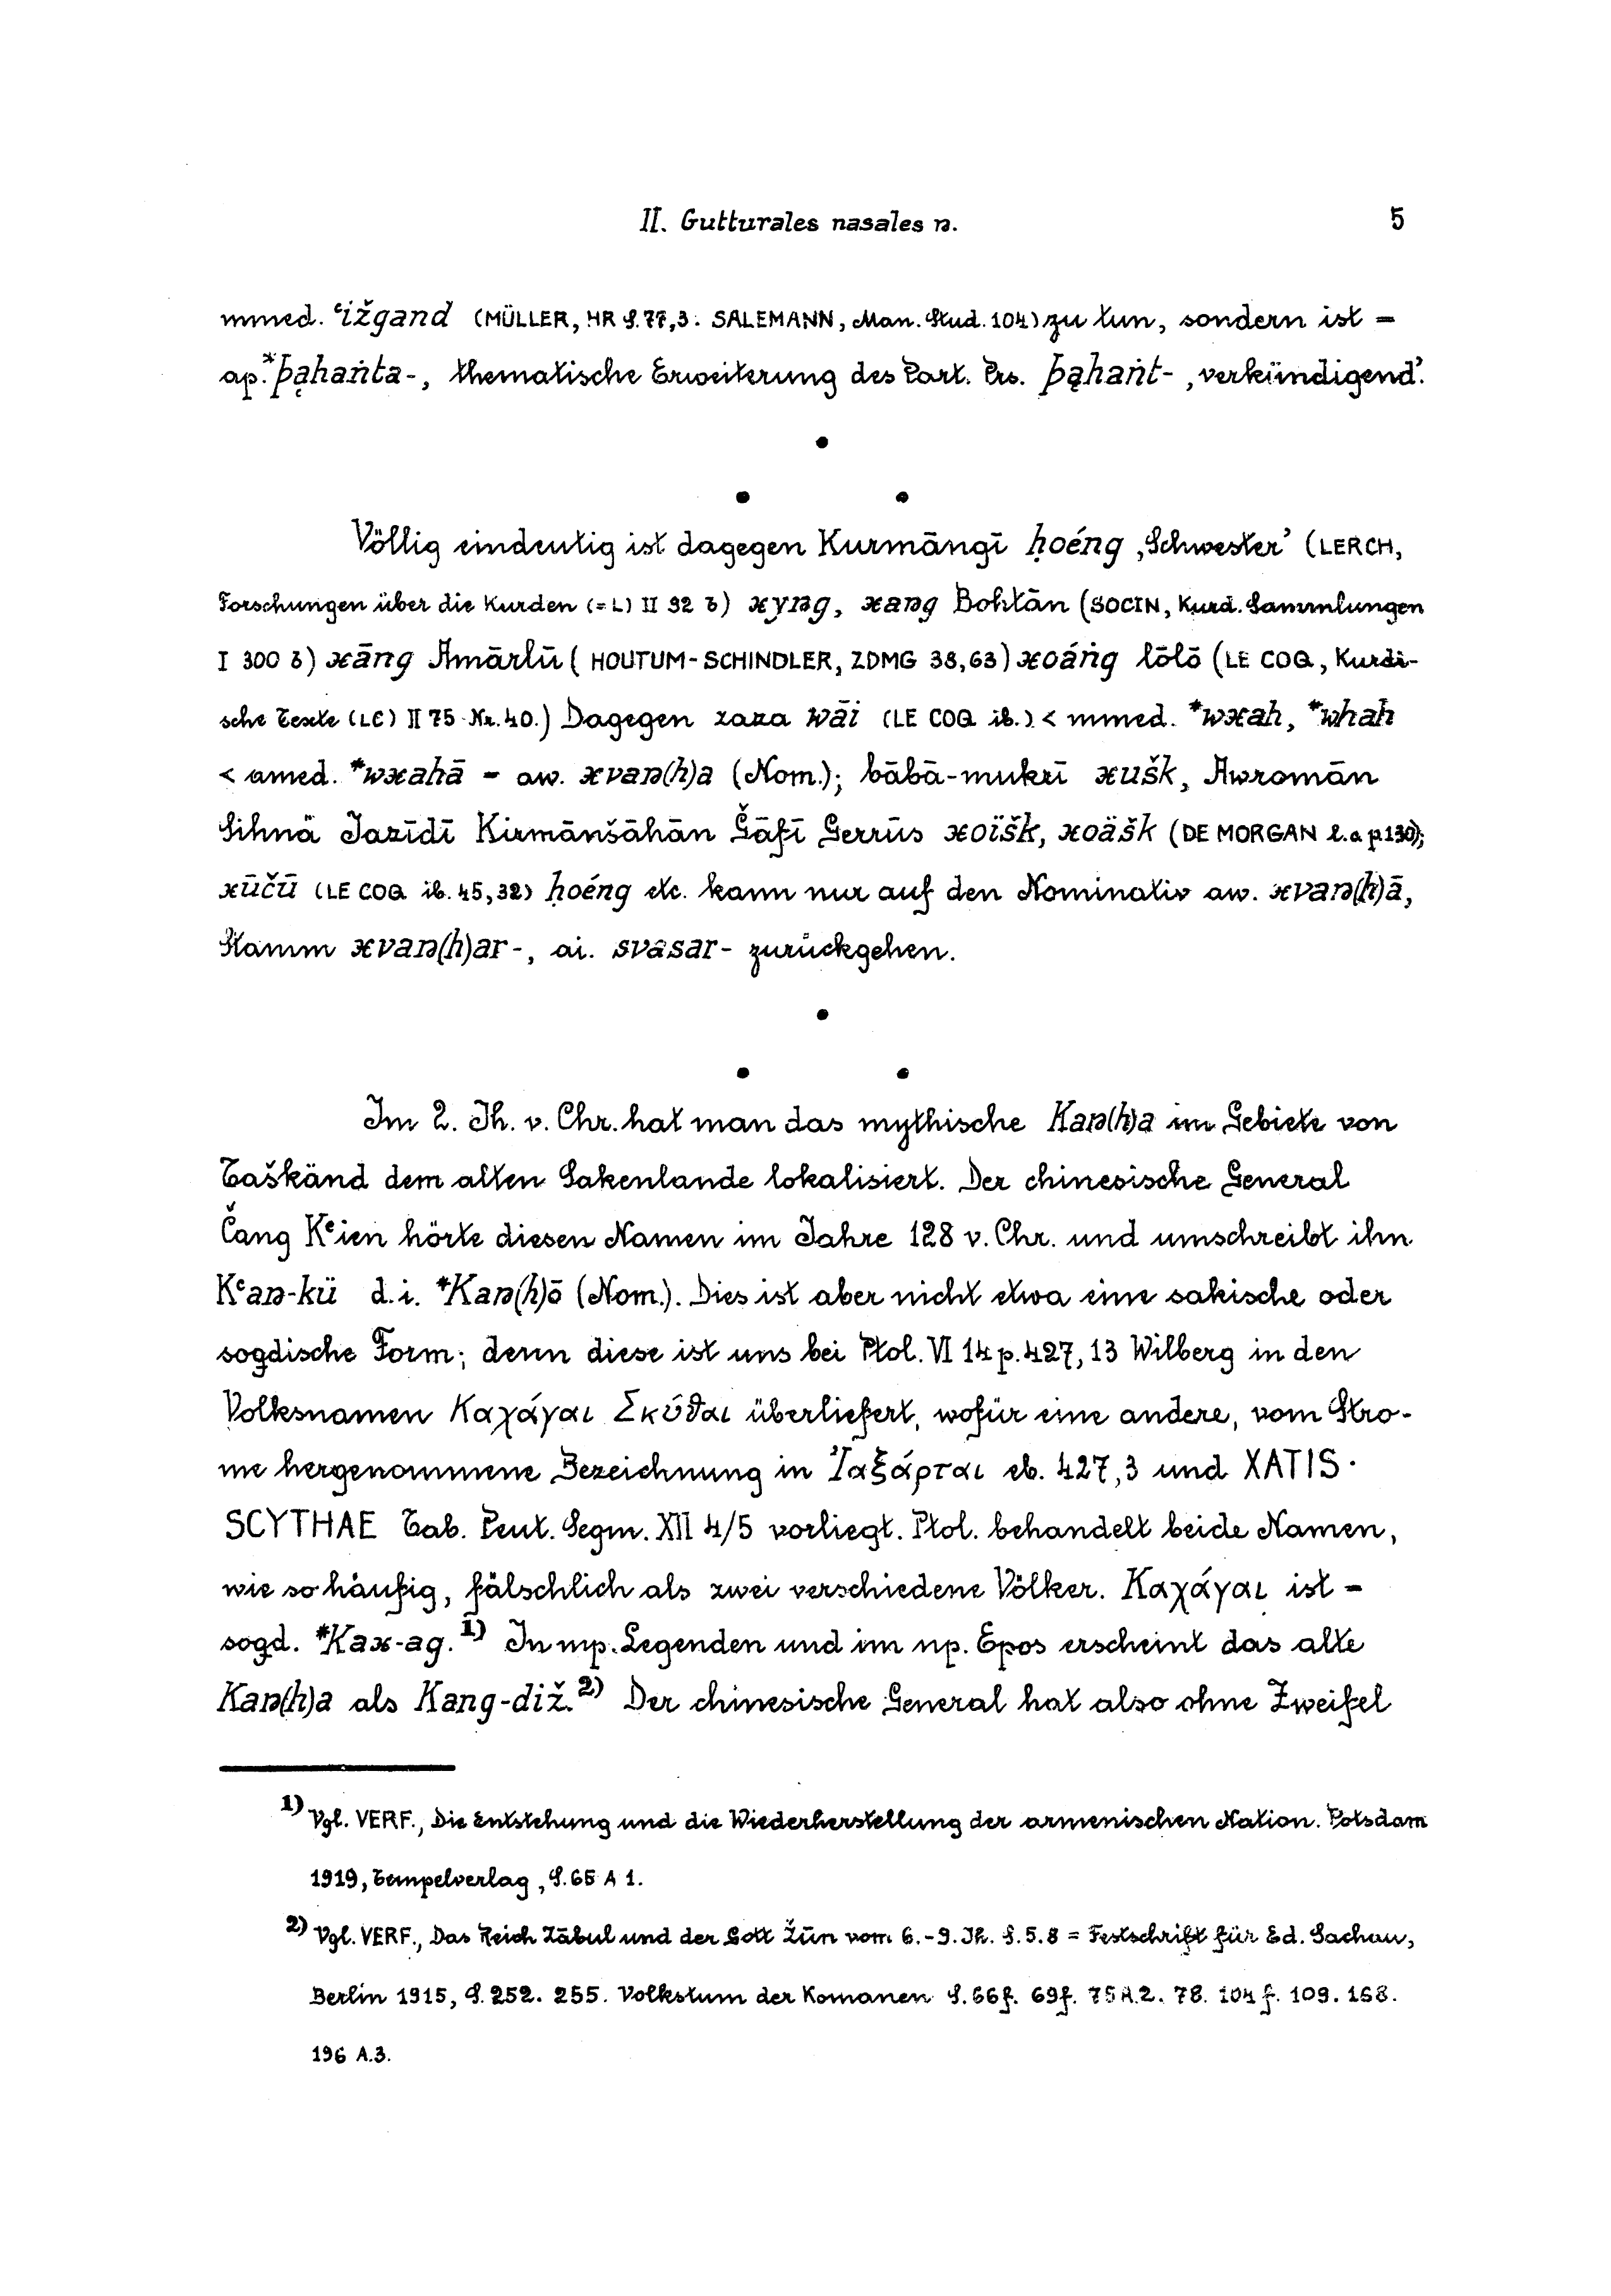 II. Gutturales nasales ŋ.
5
mmed. ʿižgand (MÜLLER, HR S.77,3. SALEMANN, Man. Stud. 104) zu tun, sondern ist =
ap. *þąhaṅta-, thematische Erweiterung des Part. Prs. þąhaṅt- ‚verkündigend’.
Völlig eindeutig ist dagegen Kurmāngī ḥoéng ‚Schwester’ (LERCH,
Forschungen über die Kurden (=L) II 92 b) xyng, xang Bohtān (SOCIN, Kurd. Sammlungen
I 300 b) xāng Amārlū (HOUTUM-SCHINDLER, ZDMG 38,63) xoáṅg lōlō (LE COQ, Kurdi-
sche Texte (LC) II 75 Nr. 40.) Dagegen zaza wāi (LE COQ ib.) < mmed. *wxah, *whah
< amed. *wxahā = aw. xvaŋ(h)a (Nom.); bābā-mukrī xušk, Awromān
Sihnä Jazīdī Kirmānšāhān Ǧāfī Gerrūs xoïšk, xoäšk (DE MORGAN l.a p.130);
xūčū (LE COQ ib. 45,32) ḥoéng etc. kann nur auf den Nominativ aw. xvaŋ(h)ā,
Stamm xvaŋ(h)ar-, ai. svasar- zurückgehen.
Im 2. Jh. v. Chr. hat man das mythische Kaŋ(h)a im Gebiete von
Taškänd dem alten Sakenlande lokalisiert. Der chinesische General
Čang Kʿien hörte diesen Namen im Jahre 128 v. Chr. und umschreibt ihn
Kʿaŋ-kü d.i. *Kaŋ(h)ō (Nom.). Dies ist aber nicht etwa eine sakische oder
sogdische Form; denn diese ist uns bei Ptol. VI 14 p. 427,13 Wilberg in den
Volksnamen Καχάγαι Σκύθαι überliefert, wofür eine andere, vom Stro-
me hergenommene Bezeichnung in Ἰαξάρται eb. 427,3 und XATIS·
SCYTHAE Tab. Peut. Segm. XII 4/5 vorliegt. Ptol. behandelt beide Namen,
wie so häufig, fälschlich als zwei verschiedene Völker. Καχάγαι ist =
sogd. *Kax-ag.¹⁾ In mp. Legenden und im np. Epos erscheint das alte
Kaŋ(h)a als Kang-diž.²⁾ Der chinesische General hat also ohne Zweifel
¹⁾ Vgl. VERF., Die Entstehung und die Wiederherstellung der armenischen Nation. Potsdam
1919, Tempelverlag, S. 65 A 1.
²⁾ Vgl. VERF., Das Reich Zābul und der Gott Žūn vom 6.-9. Jh. S. 5.8 = Festschrift für Ed. Sachau,
Berlin 1915, S. 252. 255. Volkstum der Komanen S. 66f. 69f. 75 A.2. 78. 104 f. 109. 168.
196 A.3.